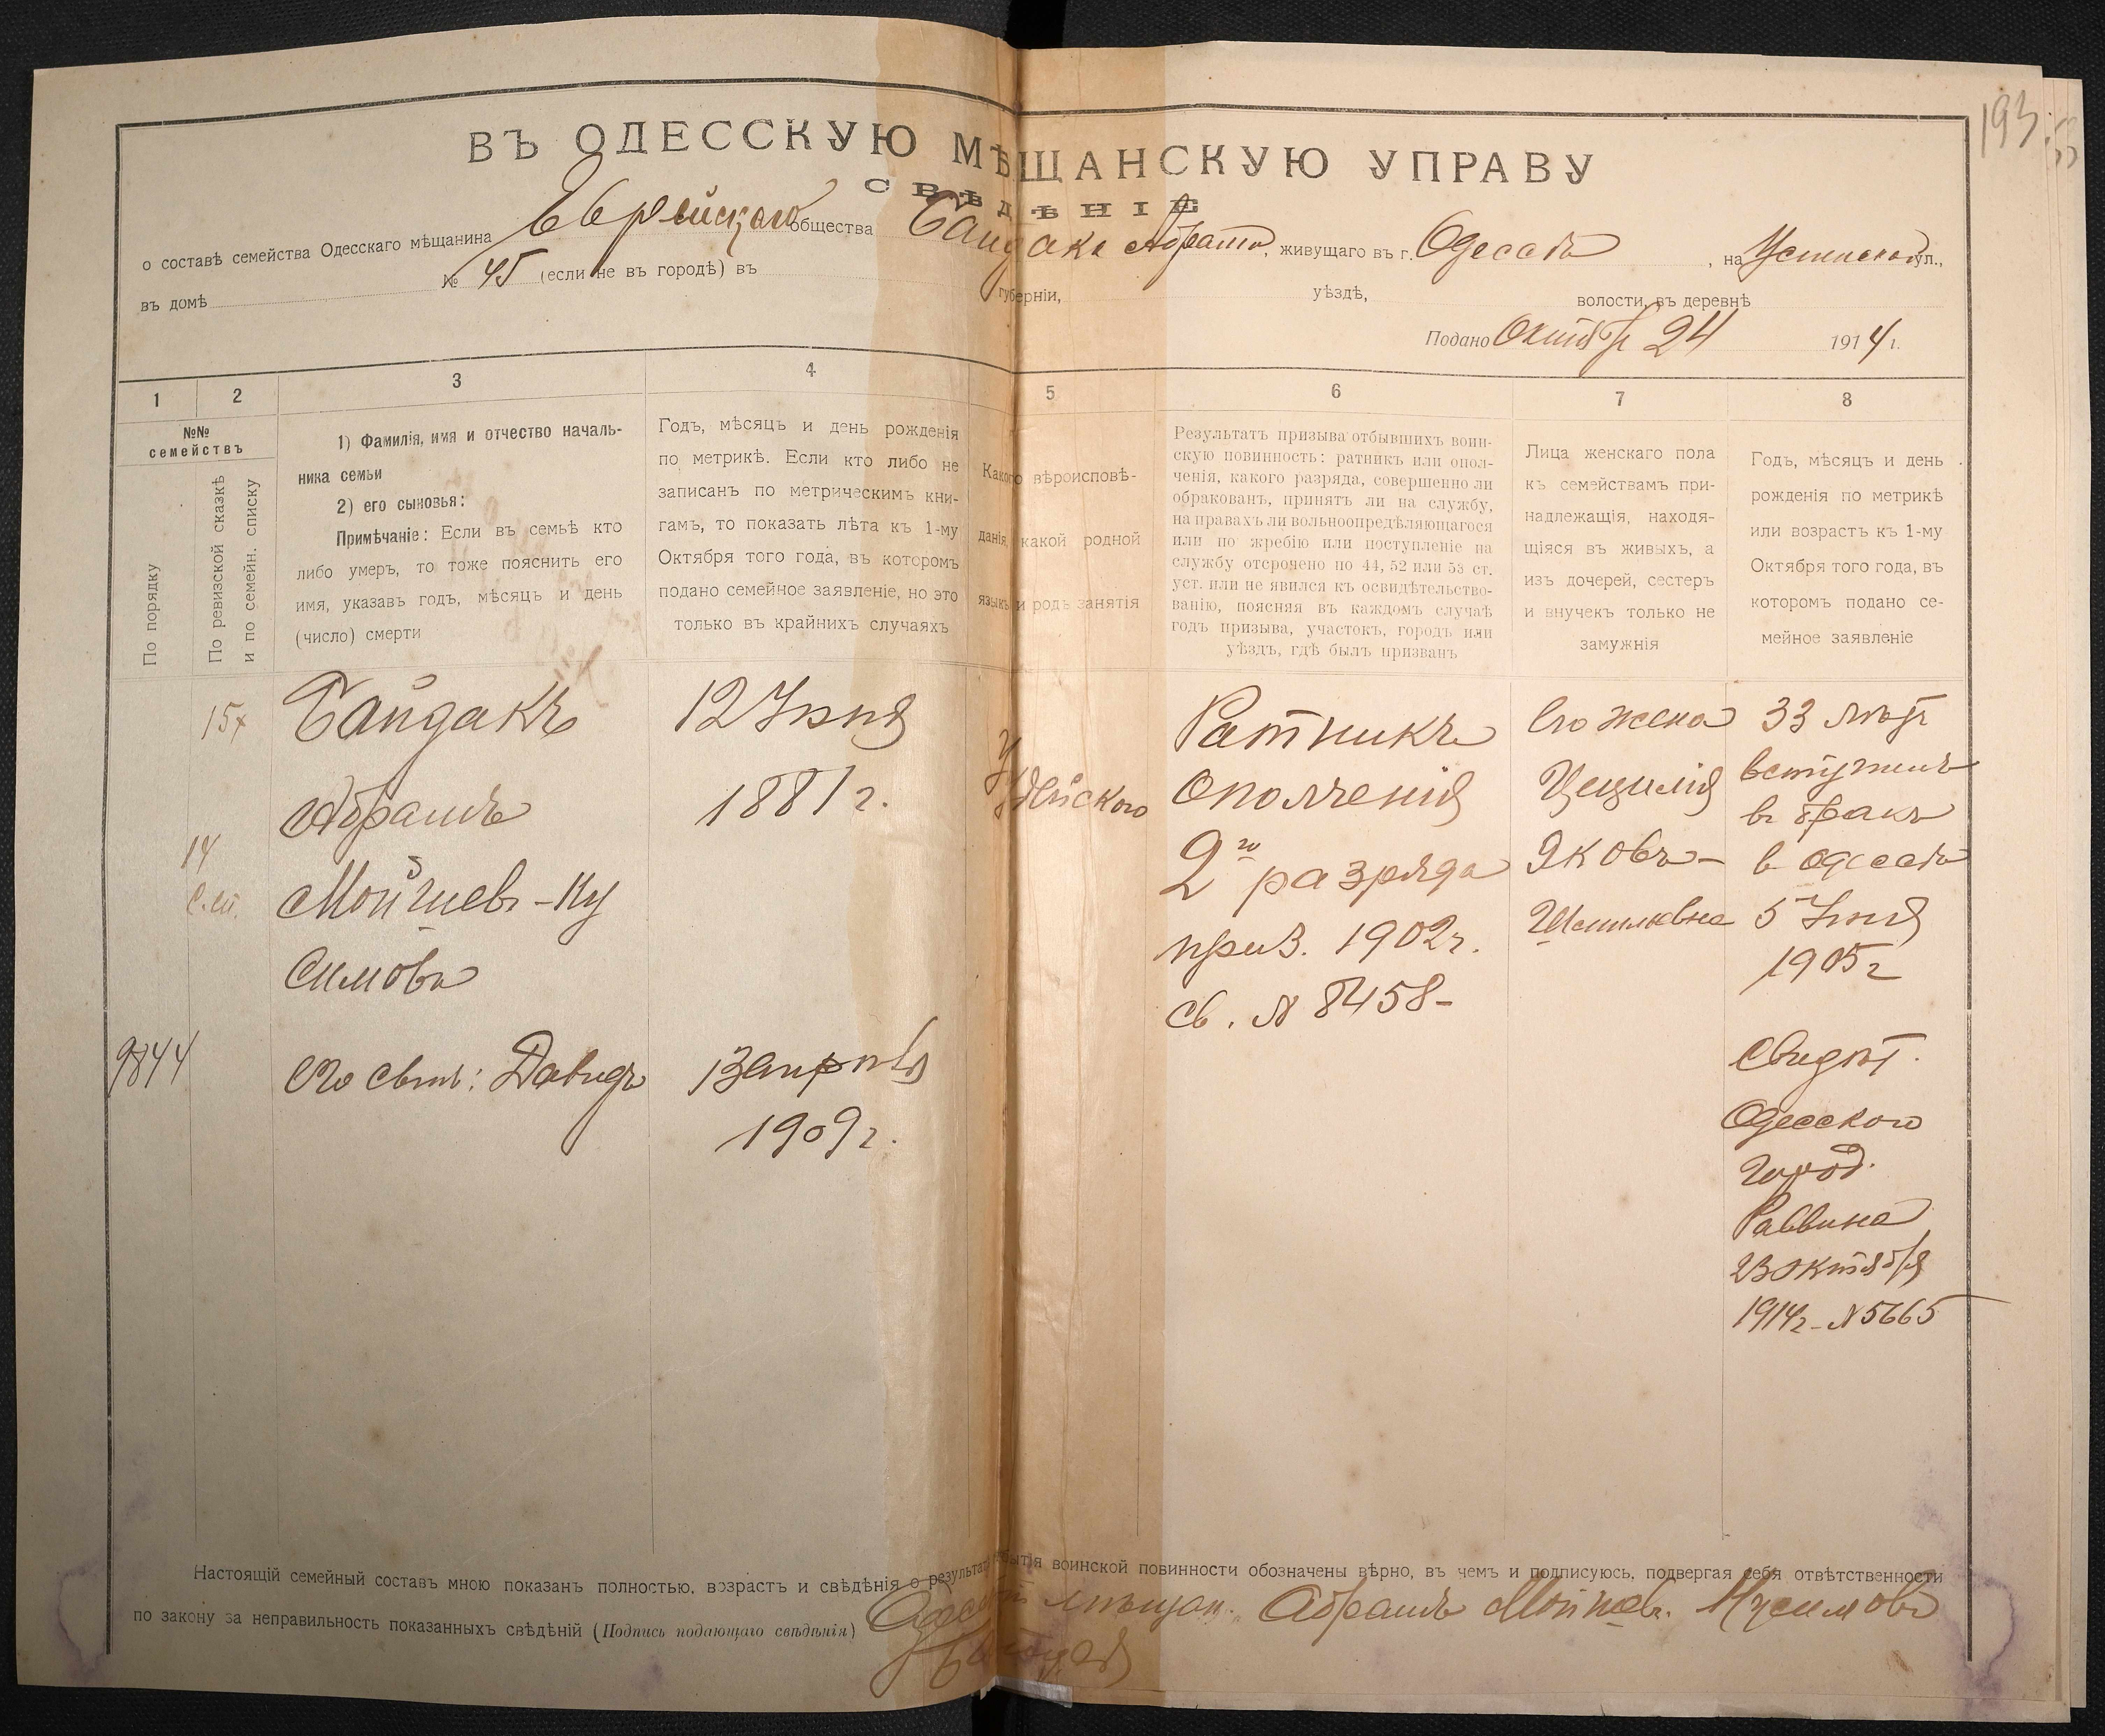 193
ВЪ ОДЕССКУЮ МѢЩАНСКУЮ УПРАВУ
СВѢДѢНІЕ
о составѣ семейства Одесскаго мѣщанина Еврейского общества Байдака Абрама, живущаго въ г. Одессѣ, на ул.,
въ домѣ № 45 (если не въ городѣ) въ губерніи, уѣздѣ, волости, въ деревнѣ
Подано Октября 24 1914 г.
1 2 3 4 5 6 7 8
№№ семействъ
По порядку
По ревизской сказкѣ
и по семейн. списку
1) Фамилія, имя и отчество началь-
ника семьи
2) его сыновья:
Примѣчаніе: Если въ семьѣ кто
либо умеръ, то тоже пояснить его
имя, указавъ годъ, мѣсяцъ и день
(число) смерти
Годъ, мѣсяцъ и день рожденія
по метрикѣ. Если кто либо не
записанъ по метрическимъ кни-
гамъ, то показать лѣта къ 1-му
Октября того года, въ которомъ
подано семейное заявленіе, но это
только въ крайнихъ случаяхъ
Какого вѣроисповѣ-
данія, какой родной
языкъ и родъ занятія
Результатъ призыва отбывшихъ воин-
скую повинность: ратникъ или опол-
ченія, какого разряда, совершенно ли
обракованъ, принятъ ли на службу,
на правахъ ли вольноопредѣляющагося
или по жребію или поступленіе на
службу отсрочено по 44, 52 или 53 ст.
уст. или не явился къ освидѣтельство-
ванію, поясняя въ каждомъ случаѣ
годъ призыва, участокъ, городъ или
уѣздъ, гдѣ былъ призванъ
Лица женскаго пола
къ семействамъ при-
надлежащія, находя-
щіяся въ живыхъ, а
изъ дочерей, сестеръ
и внучекъ только не
замужнія
Годъ, мѣсяцъ и день
рожденія по метрикѣ
или возрастъ къ 1-му
Октября того года, въ
которомъ подано се-
мейное заявленіе
Байдакъ
Абрамъ
14
Мойшевъ-Ну
симовъ
9844
его сынъ: Давидъ
12 Іюня
1881 г.
13 апрѣля
1909 г.
Іудейского
Ратникъ
ополченія
2го разряда
приз. 1902 г.
св. N 8458-
Его жена
Цецилія
Яковъ-
Шмилевна
33 лѣтъ
вступилъ
въ бракъ
в Одессѣ
5 Іюня
1905 г
Свидѣт.
Одесского
Город.
Раввина
23 октября
1914 г - N 5665
Настоящій семейный составъ мною показанъ полностью, возрастъ и свѣдѣнія о результатѣ отбытія воинской повинности обозначены вѣрно, въ чемъ и подписуюсь, подвергая себя отвѣтственности
по закону за неправильность показанныхъ свѣдѣній (Подпись подающаго свѣдѣнія) Одесскій мѣщан. Абрамъ Мойшев. Нусимовъ
Байдакъ